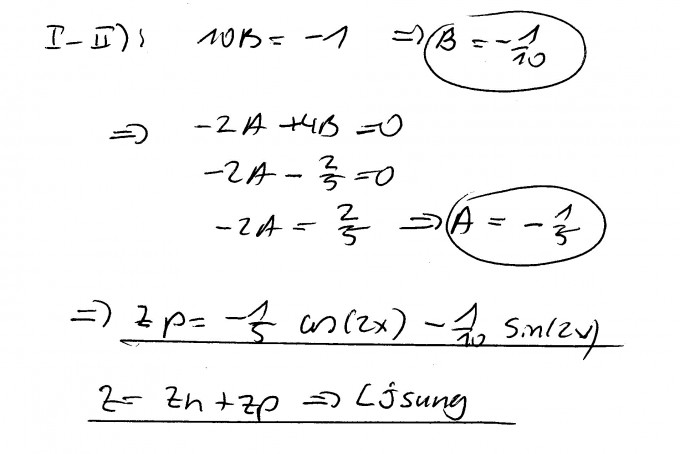 I-II): 10B = -1 => B = -1/10
=> -2A +4B =0
-2A - 2/5 =0
-2A = 2/5 => A = - 1/5
=> zp= -1/5 cos(2x) - 1/10 sin(2x)
z= zh + zp => Lösung